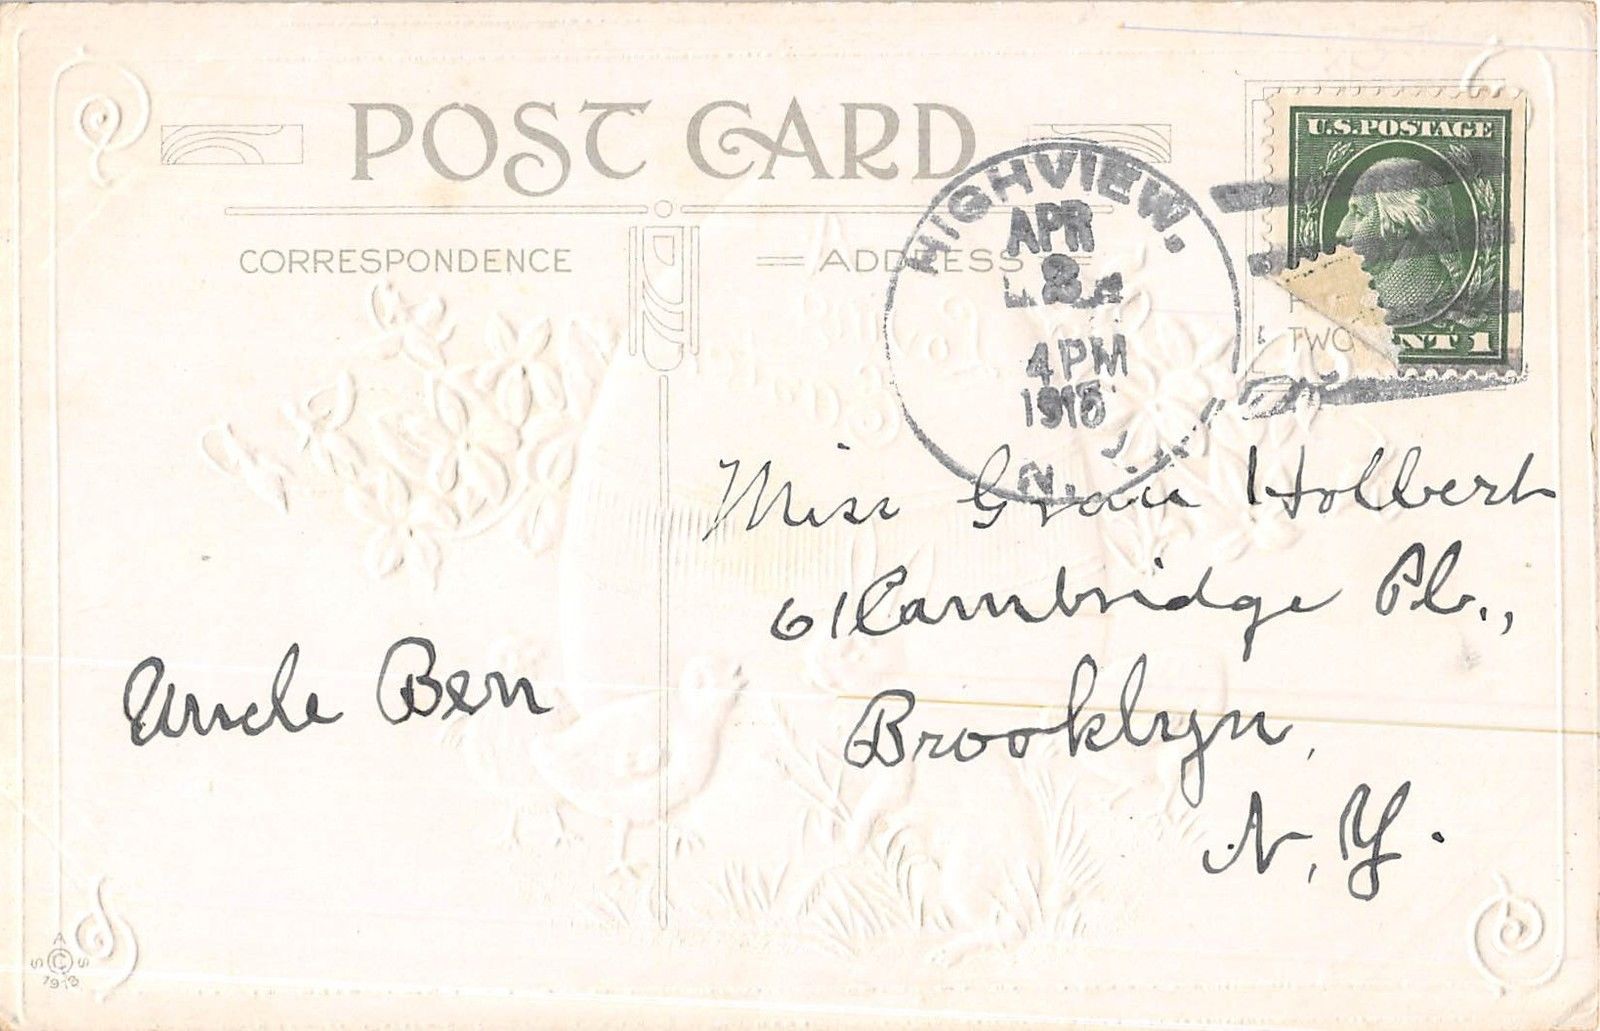 POST CARD
CORRESPONDENCE
ADDRESS
U.S. POSTAGE
NT 1
TWO
HIGHVIEW.
APR
8
4 PM
N. J.
Miss Grace Holbert
61 Cambridge Pl.,
Brooklyn,
N. Y.
Uncle Ben
A
S © S
1913